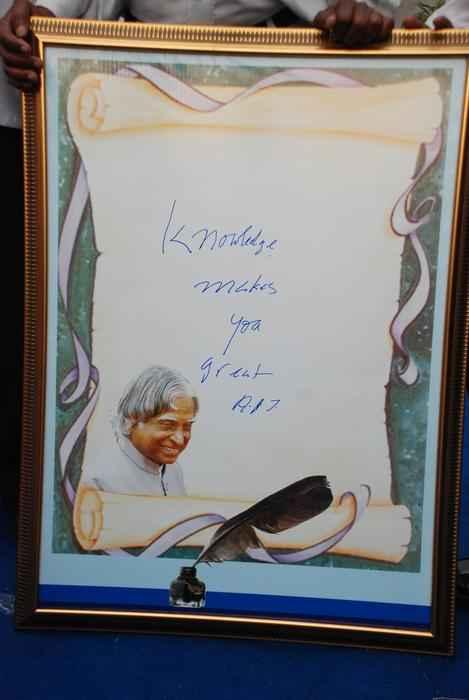 Knowledge
makes
you
great